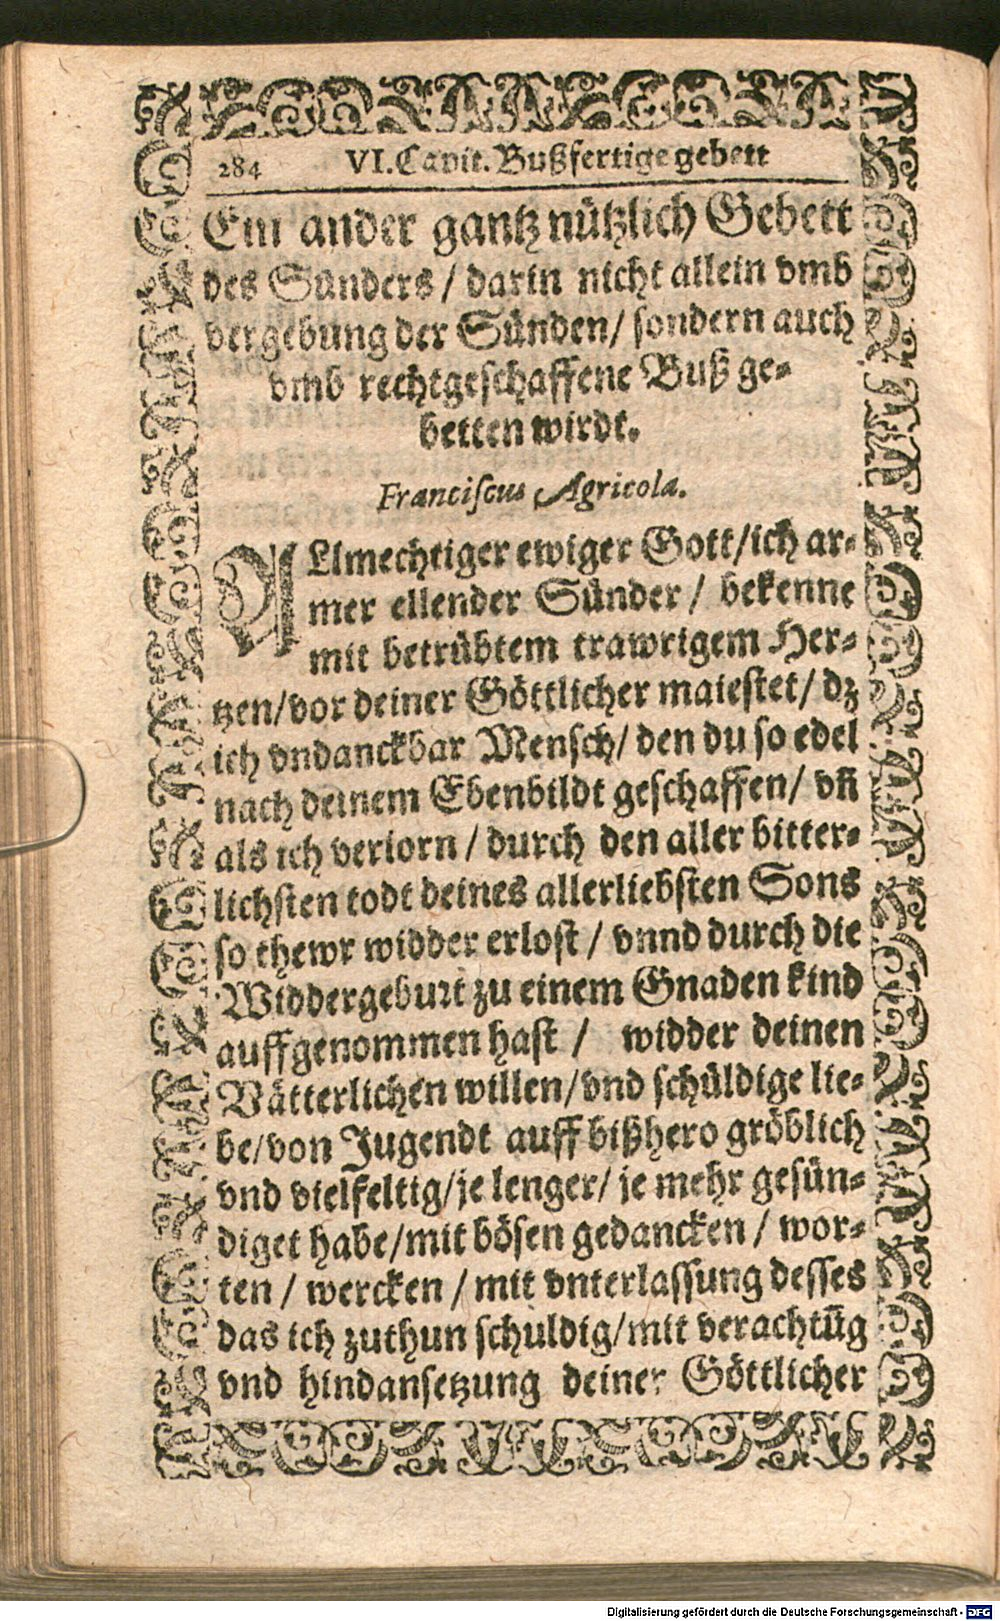 284 VI. Capit. Bußfertige gebett
Ein ander gantz nützlich Gebett
des Sünders / darin nicht allein vmb
vergebung der Sünden / sondern auch
vmb rechtgeschaffene Buß ge-
betten wirdt.
Franciscus Agricola.
ALlmechtiger ewiger Gott / ich ar-
mer ellender Sünder / bekenne
mit betrübtem trawrigem Her-
tzen / vor deiner Göttlicher maiestet / dz
ich vndanckbar Mensch / den du so edel
nach deinem Ebenbildt geschaffen / vñ
als ich verlorn / durch den aller bitter-
lichsten todt deines allerliebsten Sons
so thewr widder erlost / vnnd durch die
Widdergeburt zu einem Gnaden kind
auffgenommen hast / widder deinen
Vätterlichen willen / vnd schüldige lie-
be / von Jugendt auff bißhero gröblich
vnd vielfeltig / je lenger / je mehr gesün-
diget habe / mit bösen gedancken / wor-
ten / wercken / mit vnterlassung desses
das ich zuthun schuldig / mit verachtūg
vnd hindansetzung deiner Göttlicher
Digitalisierung gefördert durch die Deutsche Forschungsgemeinschaft - DFG